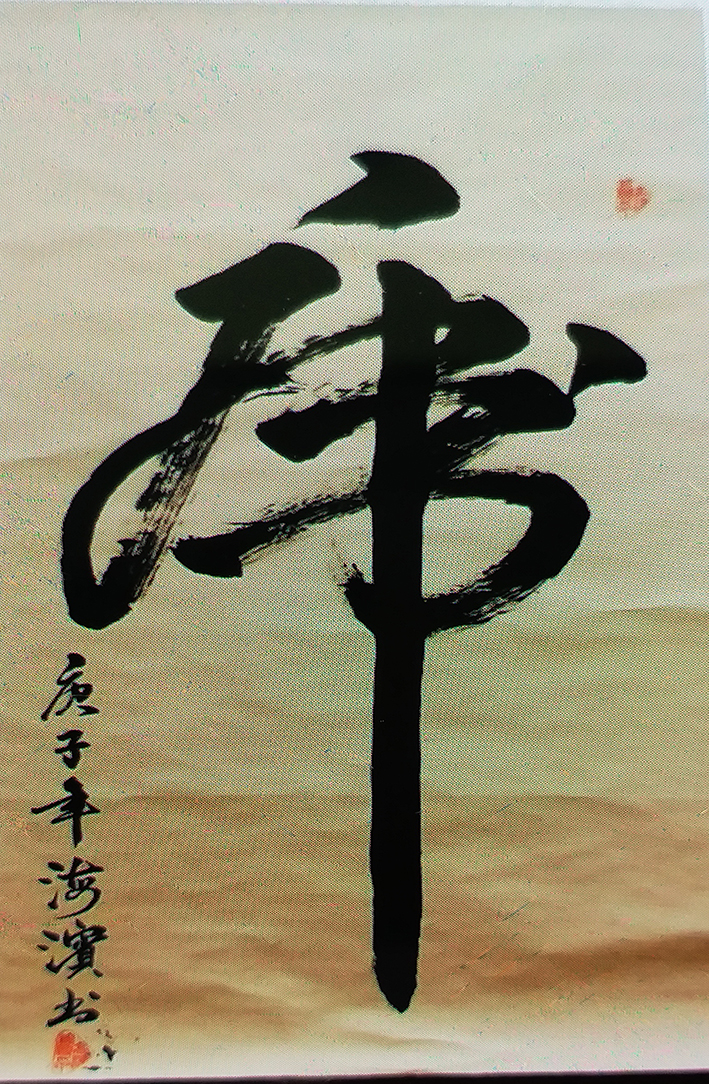 虎
庚子年海濱书